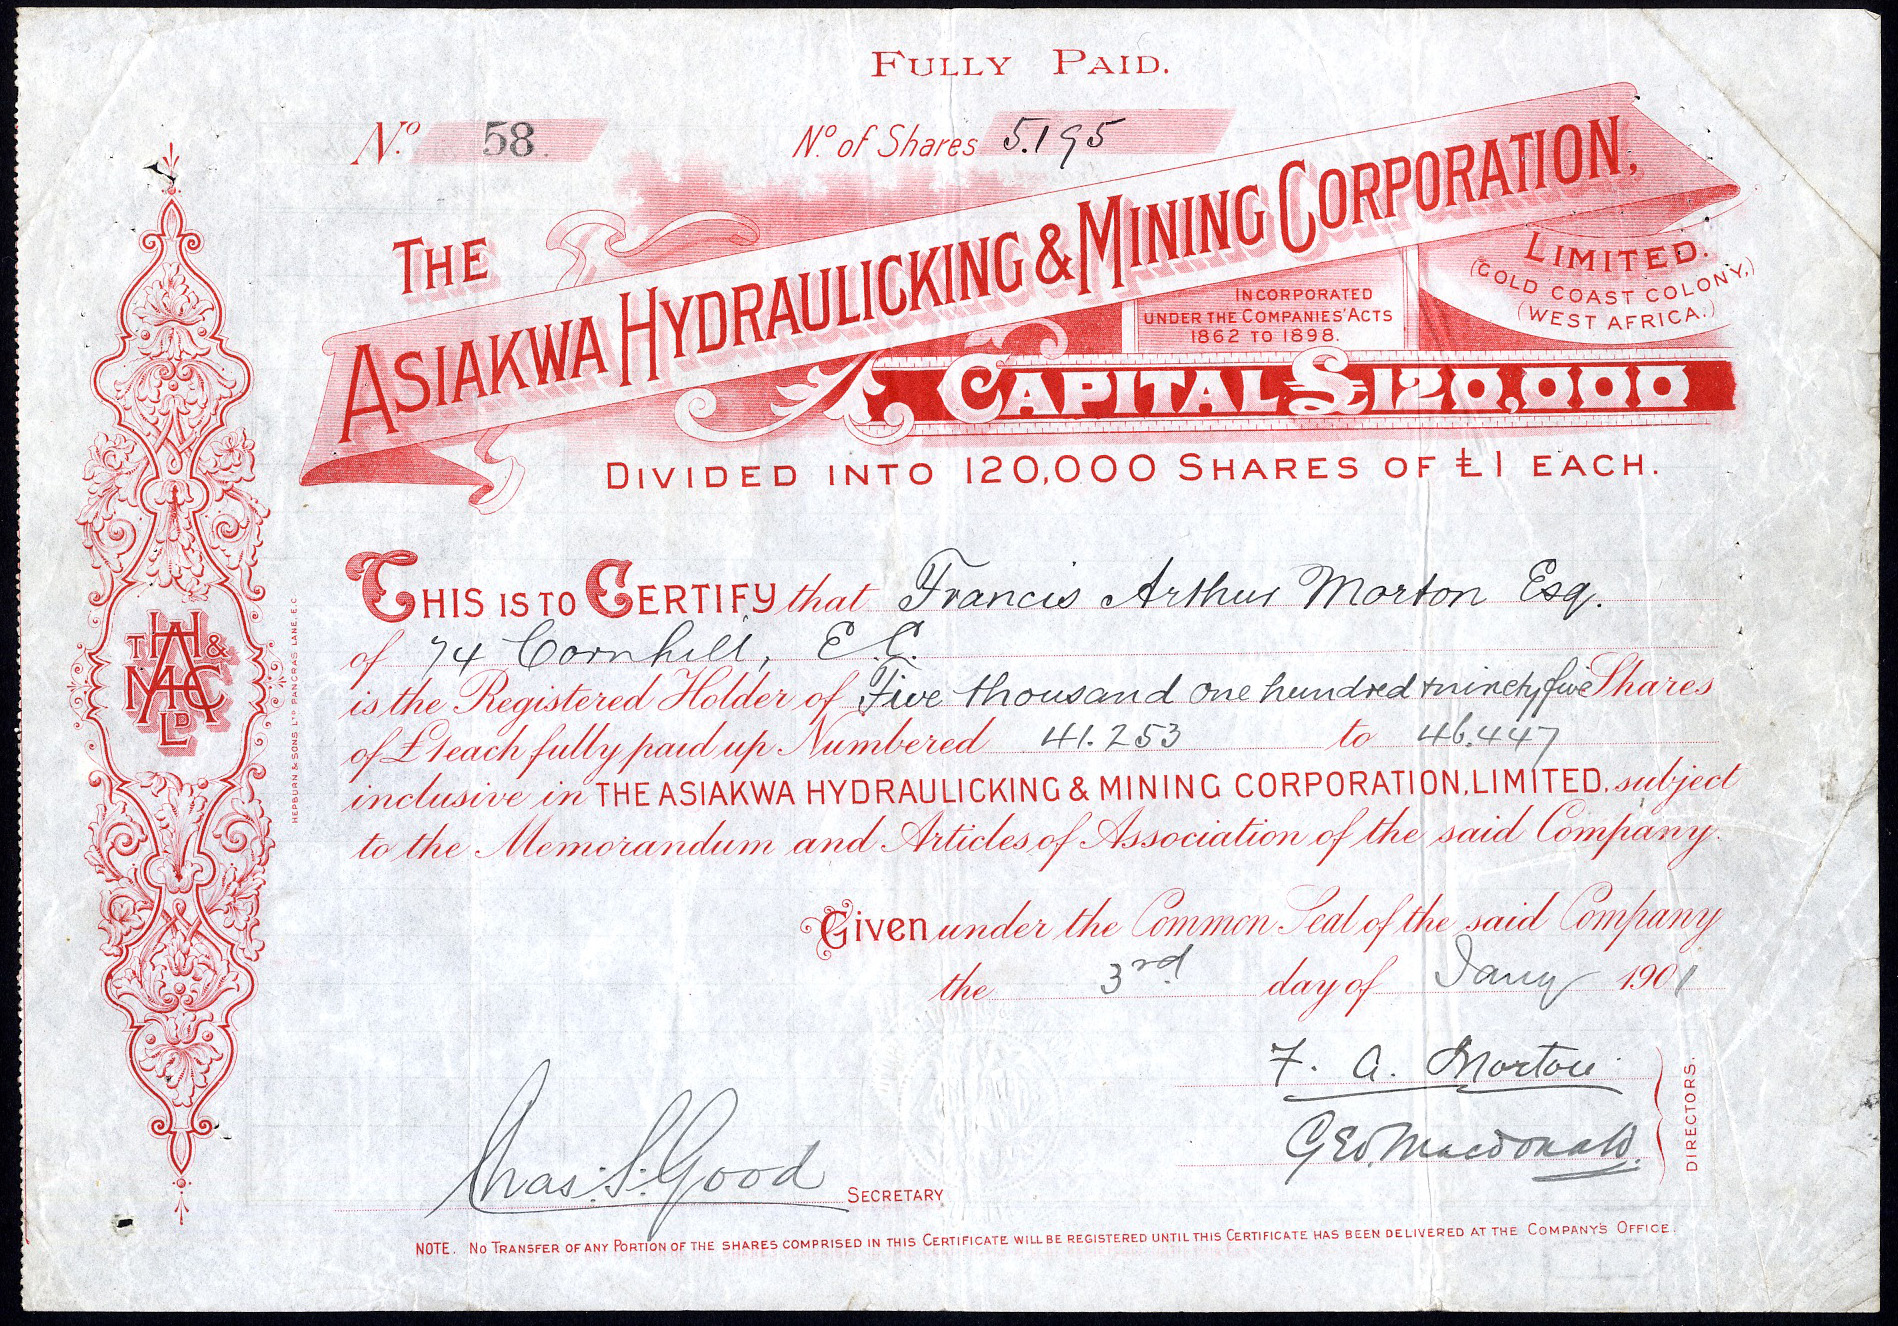 FULLY PAID.
No. 58 No. of Shares 5.195
THE
ASIAKWA HYDRAULICKING & MINING CORPORATION,
LIMITED.
(GOLD COAST COLONY,)
(WEST AFRICA.)
INCORPORATED
UNDER THE COMPANIES' ACTS
1862 TO 1898.
CAPITAL £120,000
DIVIDED INTO 120,000 SHARES OF £1 EACH.
THIS IS TO CERTIFY that Francis Arthur Morton Esq.
of 74 Cornhill, E.C.
is the Registered Holder of Five thousand one hundred & ninety five Shares
of £1 each fully paid up Numbered 41.253 to 46.447
inclusive in THE ASIAKWA HYDRAULICKING & MINING CORPORATION, LIMITED, subject
to the Memorandum and Articles of Association of the said Company.
Given under the Common Seal of the said Company
the 3rd day of Jany 1901
F. A. Morton
Geo. Macdonald.
DIRECTORS.
Chas. S. Good SECRETARY
NOTE. NO TRANSFER OF ANY PORTION OF THE SHARES COMPRISED IN THIS CERTIFICATE WILL BE REGISTERED UNTIL THIS CERTIFICATE HAS BEEN DELIVERED AT THE COMPANY'S OFFICE.
THE AH & MC LD
HEPBURN & SONS LTD PANCRAS LANE, E.C.